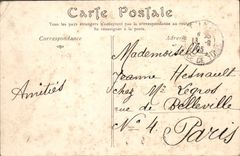 Carte Postale
Tous les pays étrangers n'acceptent pas la correspondance au recto.
Se renseigner à la poste.
Correspondance
Adresse
Mademoiselle
Jeanne Hesnault
chez Mr Legros
rue de Belleville
No 4. Paris
Amitiés